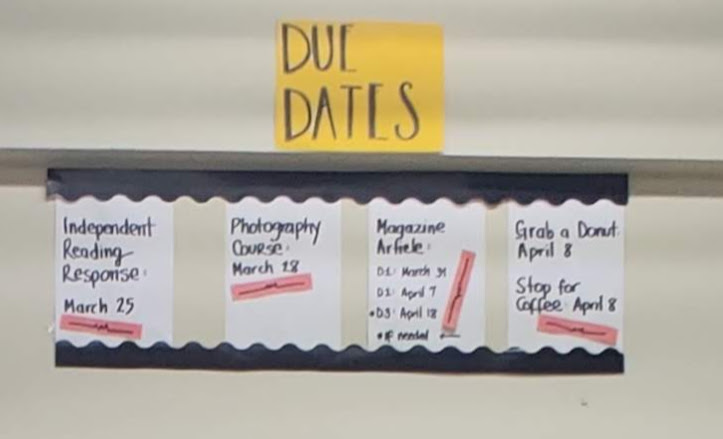 DUE
DATES
Independent
Reading
Response:
March 25
Photography
Course:
March 28
Magazine
Article:
D1: March 31
D2: April 7
*D3: April 18
*If needed
Grab a Donut:
April 8
Stop for
Coffee: April 8